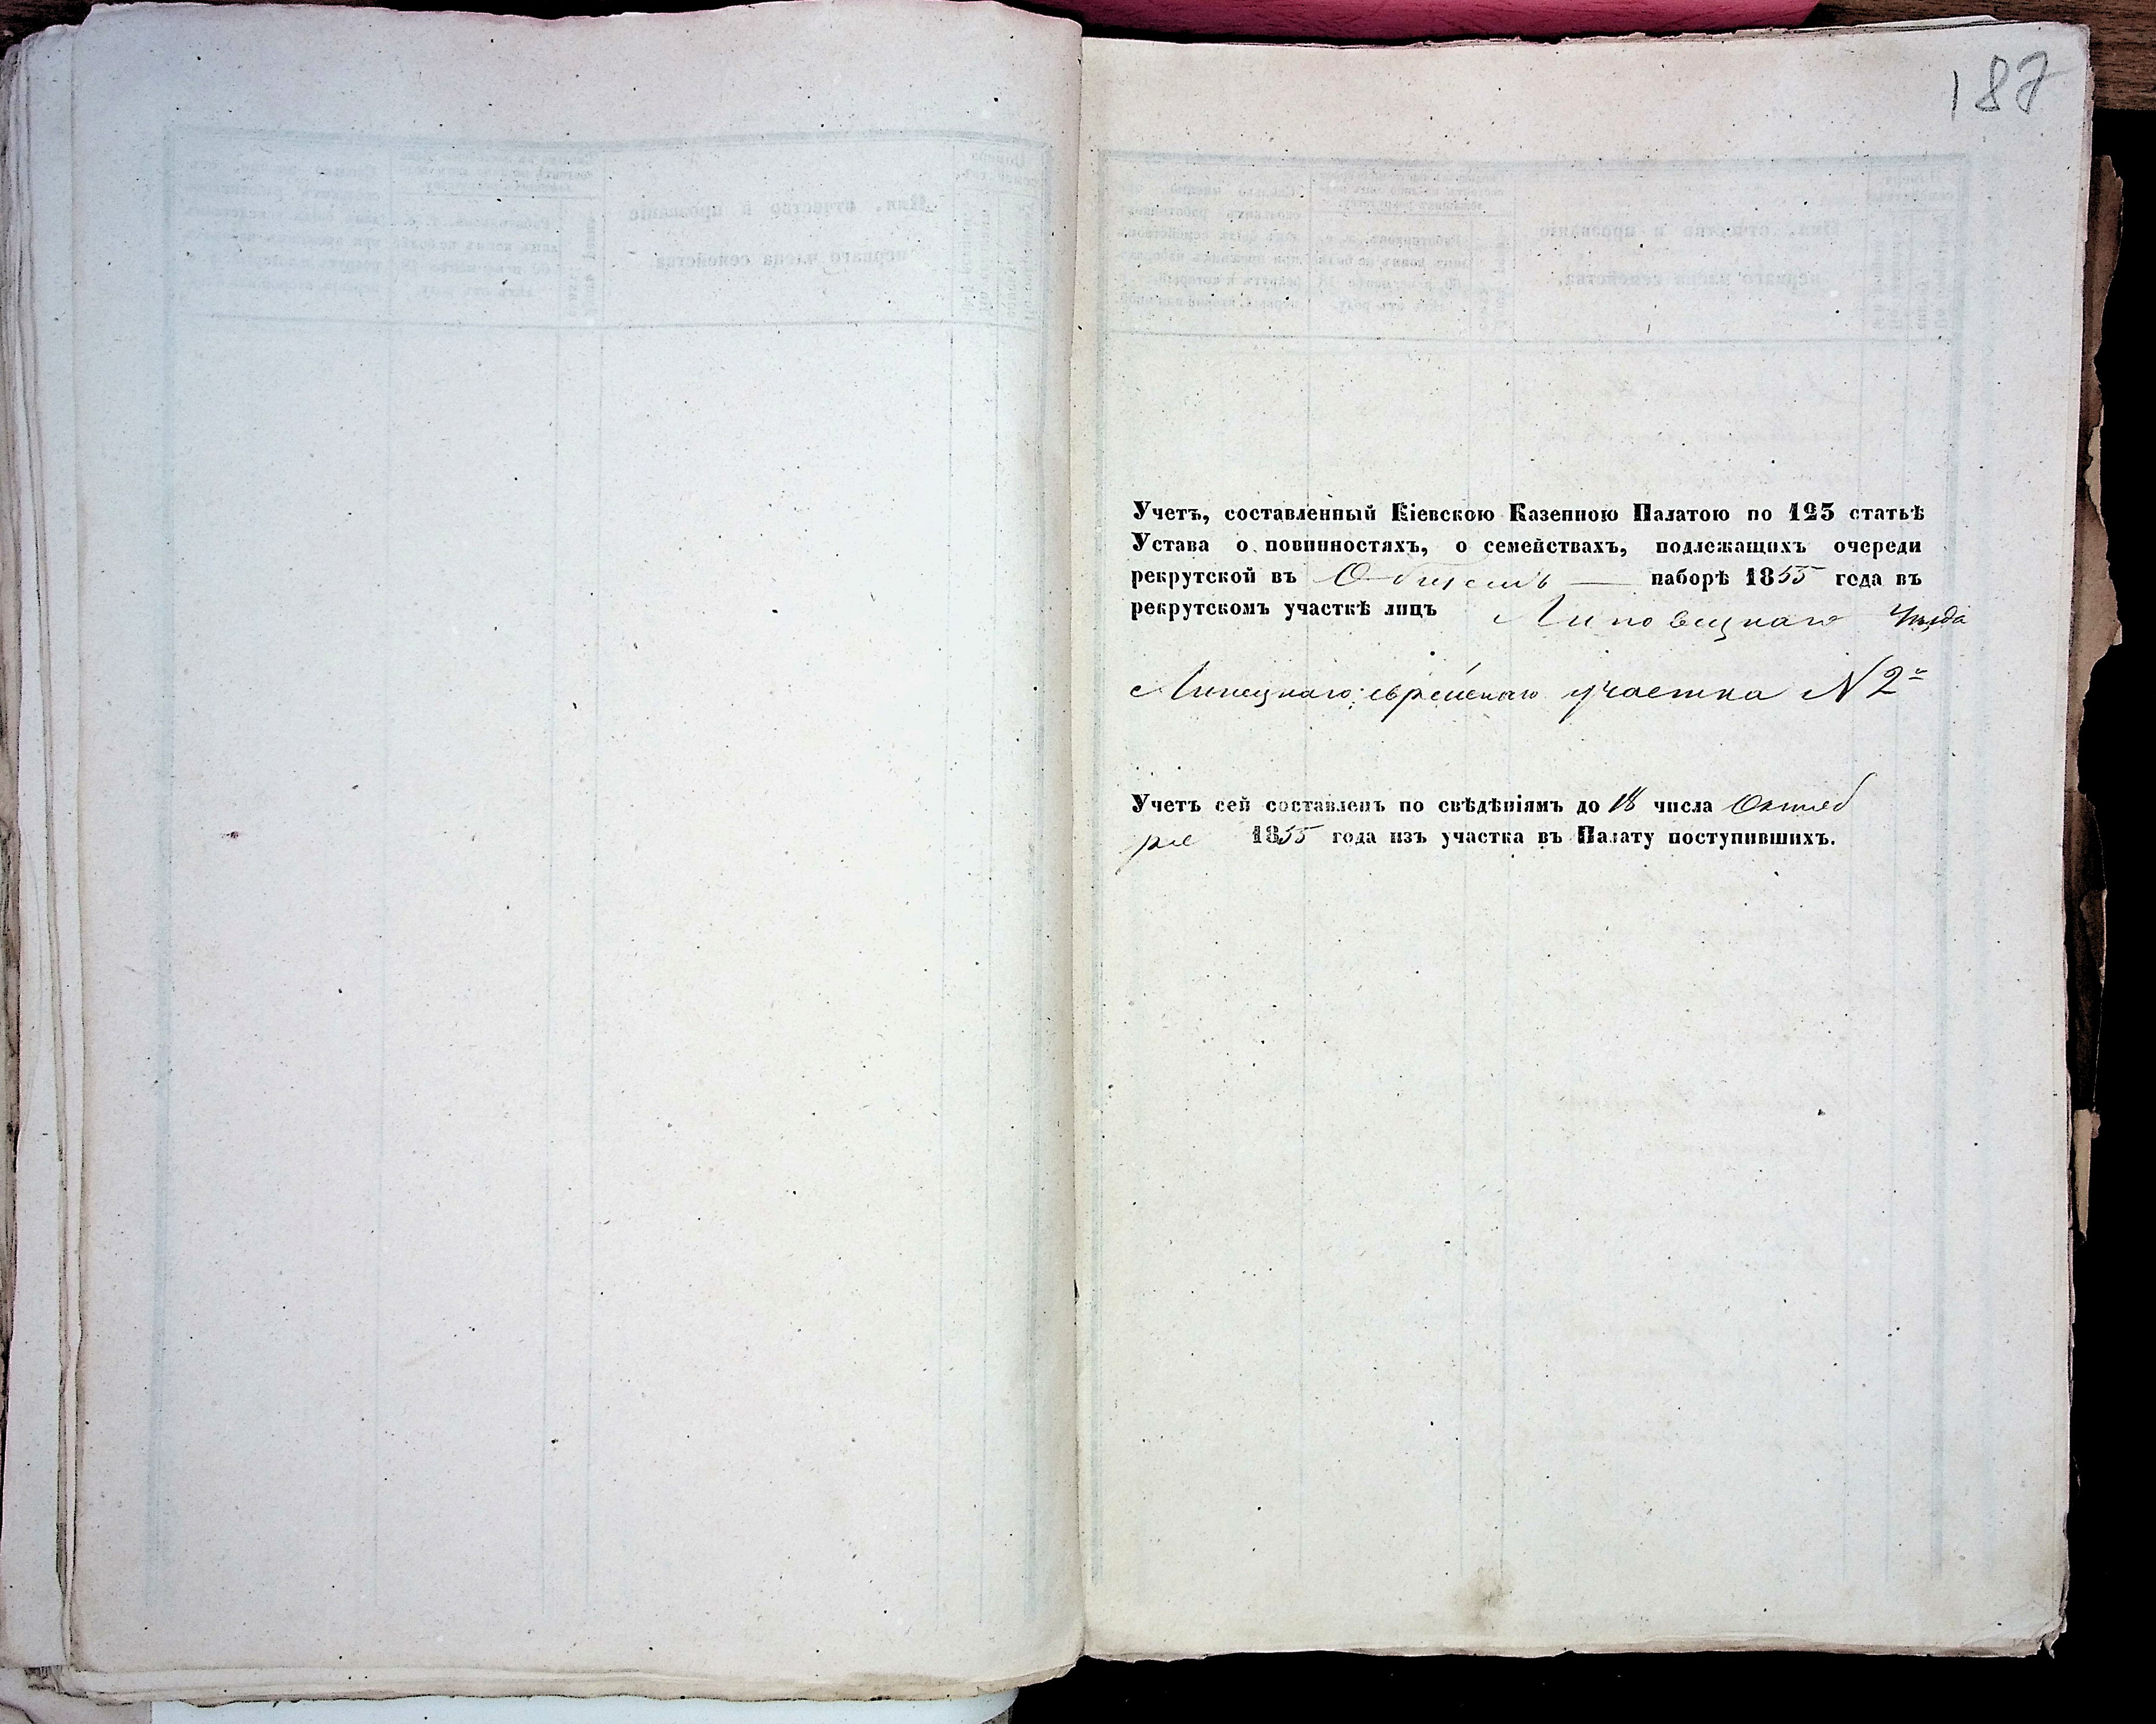 187
Учетъ, составленный Кіевскою Казенною Палатою по 125 статьѣ
Устава о повинностяхъ, о семействахъ, подлежащихъ очереди
рекрутской въ Общемъ — наборѣ 1855 года въ
рекрутскомъ участкѣ лицъ Липовецкаго Уѣзда
Липецкаго еврейскаго участка N 2й
Учетъ сей составленъ по свѣдѣніямъ до 18 числа Октяб
ря 1855 года изъ участка въ Палату поступившихъ.